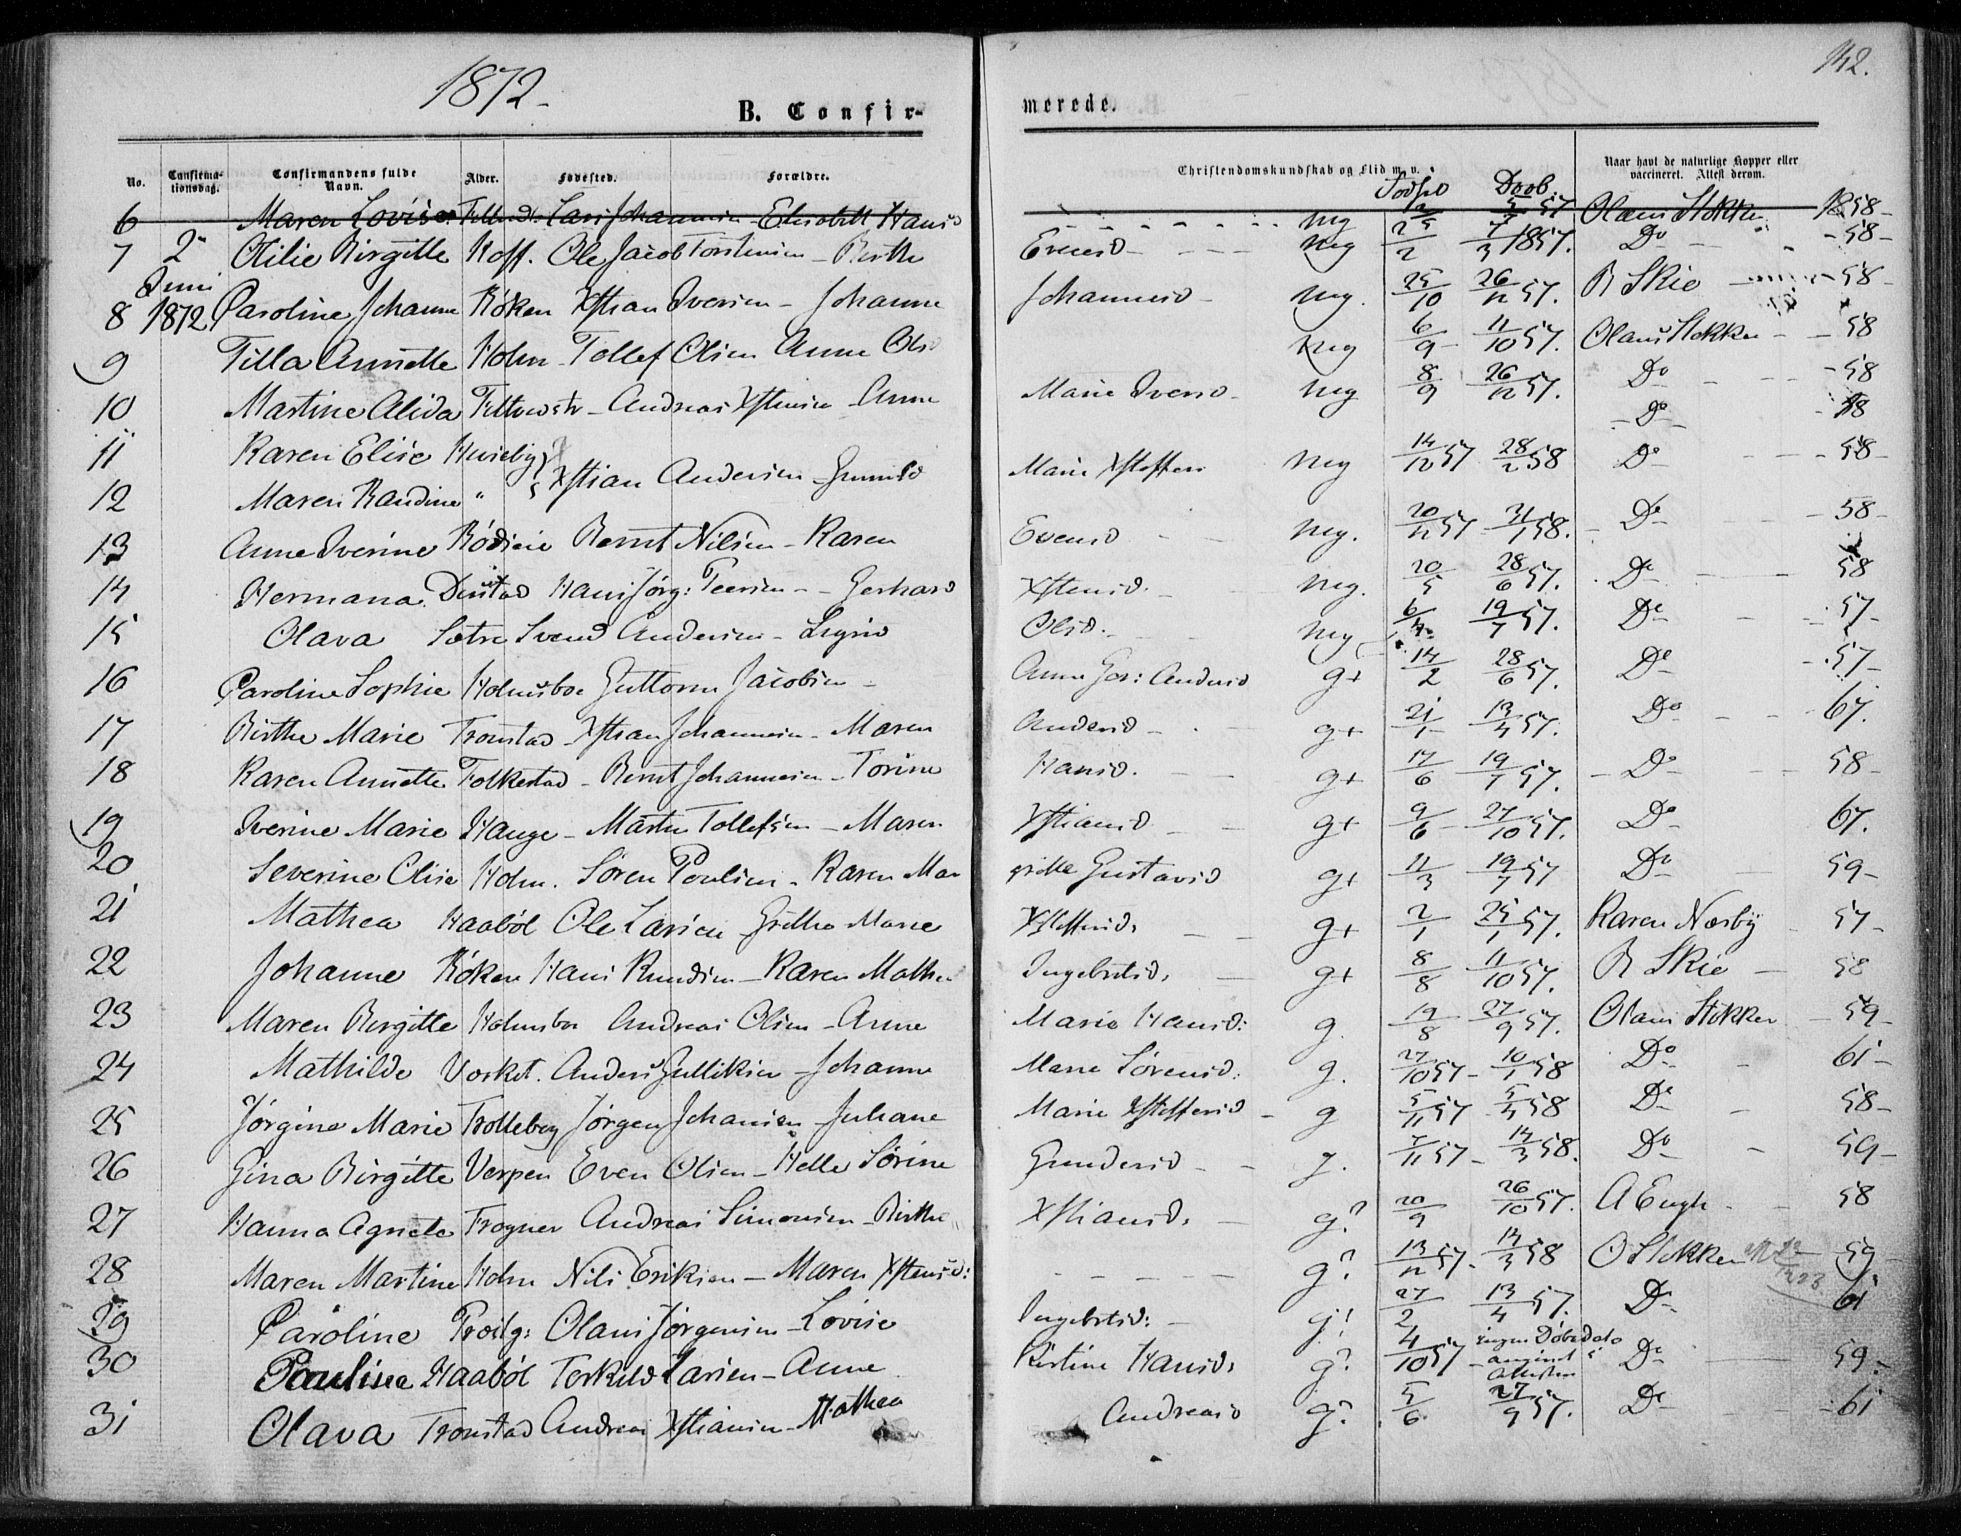 1872.
142.
B. Confir-
merede.
No. Confirma-tionsdag. Confirmandens fulde Navn. Alder. Fødested. Forældre. Christendomskundskab og Flid m. v. Fødsel Daab. Naar havt de naturlige Kopper eller vaccineret. Attest derom.
6 Maren Lovise Lars Johannesen Elisabeth Hansd meg 57 Olaus Stokker 58
7 2 Otilie Birgitte Hoff. Ole Jacob Torstensen Birthe Evensd meg 25/2 7/3 1857. Do 58
Juni
8 1872 Caroline Johanne Røken Xstian Iversen Johanne Johannesd meg. 25/10 26/12 57. B Skie 58
9 Tilla Annette Holm Tollef Olsen Anne Olsd meg 6/9 11/10 57. Olaus Stokker 58
10 Martine Alida Andreas Xstensen Anne Marie Iversd meg 8/9 26/12 57. Do 58
Do 58
11 Karen Elise
12 Maren Randine " Xstian Andersen Gunnild Marie Xstoffers meg 14/12 57 28/2 58 Do 58
13 Anne Iverine Rødseie Bernt Nilsen Karen Evensd meg. 20/12 57 31/1 58. Do 58
14 Hermana Hans Jørg: Peersen Gerhard Xstensd. meg. 20/5 28/6 57. Do 58
15 Olava Sætre Svend Andersen Sigrid Olsd. meg 6/4 19/7 57. Do 57
16 Caroline Sophie Holmsboe Guttorm Jacobsen Anne Ger: Andersd g+ 14/2 28/6 57. Do 57
17 Birthe Marie Tronstad Xstian Johannesen Maren Andersd g+ 21/1 13/4 57. Do 67.
18 Karen Annette Folkestad Bernt Johannesen Torine Hansd. g+ 17/6 19/7 57. Do 58
19 Iverine Marie Hauge Martin Tollefsen Maren Xstiansd g+ 9/6 27/10 57. Do 67.
20 Severine Elise Holm. Søren Poulsen Karen Mar grithe Gustavsd g+ 11/3 19/7 57 Do 59
21 Mathea Haabøl Ole Larsen Grethe Marie Xstoffersd. g+ 2/1 25/1 57. Karen Næsby 57
22 Johanne Røken Hans Knudsen Karen Mathea Ingebretsd. g+ 8/8 11/10 57. B Skie 58
23 Maren Birgitte Holmsboe Andreas Olsen Anne Marie Hansd: g 19/8 27/9 57. Olaus Stokker 59
24 Mathilde Anders Gulliksen Johanne Marie Sørensd. g. 27/10 57 10/1 58 Do 61
25 Jørgine Marie Trolleberg Jørgen Johansen Juliane Marie Xstoffersd g 5/11 57 5/4 58 Do 58
26 Gina Birgitte Verpen Even Olsen Helle Sørine Gundersd g. 7/11 57 14/3 58. Do 59
27 Hanna Agnete Frogner Andreas Simonsen Birthe Xstiansd. g? 20/9 26/10 57. A Engh 58
28 Maren Martine Holm Nils Eriksen Maren Xstensd: g? 13/12 57. 14/3 58 O Stokker 59
29 Caroline Præstg: Olaus Jørgensen Lovise Ingebretsd: g! 27/2 13/4 57. Do 61
30 Pauline Haabøl Torkild Larsen Anne Kirstine Hansd. g? 4/10 57 ingen Døbedato angivet i Attesten Do 59
31 Olava Tronstad Andreas Xstiansen Mathea Andreasd g? 5/6 27/9 57. Do 61